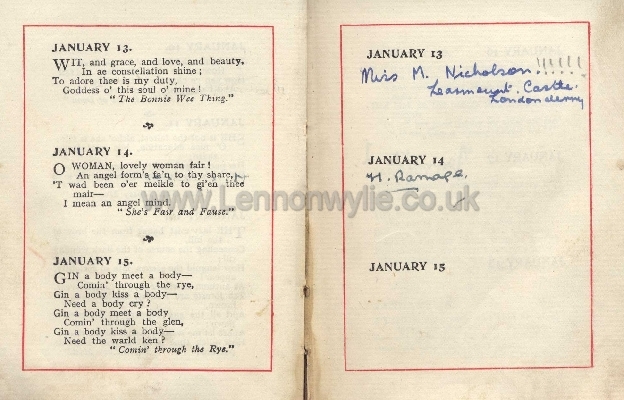 JANUARY 13.
WIT, and grace, and love, and beauty,
In ae constellation shine;
To adore thee is my duty,
Goddess o' this soul o' mine!
"The Bonnie Wee Thing."
JANUARY 14.
O WOMAN, lovely woman fair!
An angel form's fa'n to thy share,
'T wad been o'er meikle to gi'en thee
mair—
I mean an angel mind.
"She's Fair and Fause."
JANUARY 15.
GIN a body meet a body—
Comin' through the rye,
Gin a body kiss a body—
Need a body cry?
Gin a body meet a body
Comin' through the glen,
Gin a body kiss a body—
Need the warld ken?
"Comin' through the Rye."
JANUARY 13
Miss M. Nicholson!!!!!!
Learmount Castle.
Londonderry
JANUARY 14
H. Ramage.
JANUARY 15
www.Lennonwylie.co.uk